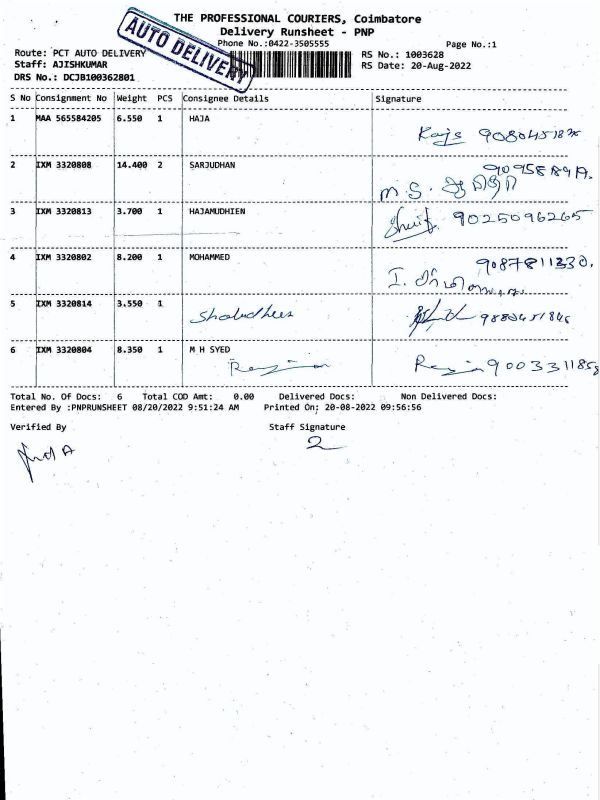 THE PROFESSIONAL COURIERS, Coimbatore
Delivery Runsheet - PNP
Phone No.:0422-3505555
Page No.:1
AUTO DELIVERY
Route: PCT AUTO DELIVERY
RS No.: 1003628
Staff: AJISHKUMAR
RS Date: 20-Aug-2022
DRS No.: DCJB100362801
S No Consignment No Weight PCS Consignee Details Signature
1 MAA 565584205 6.550 1 HAJA
2 IXM 3320808 14.400 2 SARJUDHAN
M.S.
3 IXM 3320813 3.700 1 HAJAMUDHIEN
9025096265
4 IXM 3320802 8.200 1 MOHAMMED
9087811330.
I.
5 IXM 3320814 3.550 1
6 IXM 3320804 8.350 1 M H SYED
Total No. Of Docs: 6 Total COD Amt: 0.00 Delivered Docs: Non Delivered Docs:
Entered By :PNPRUNSHEET 08/20/2022 9:51:24 AM Printed On: 20-08-2022 09:56:56
Verified By Staff Signature